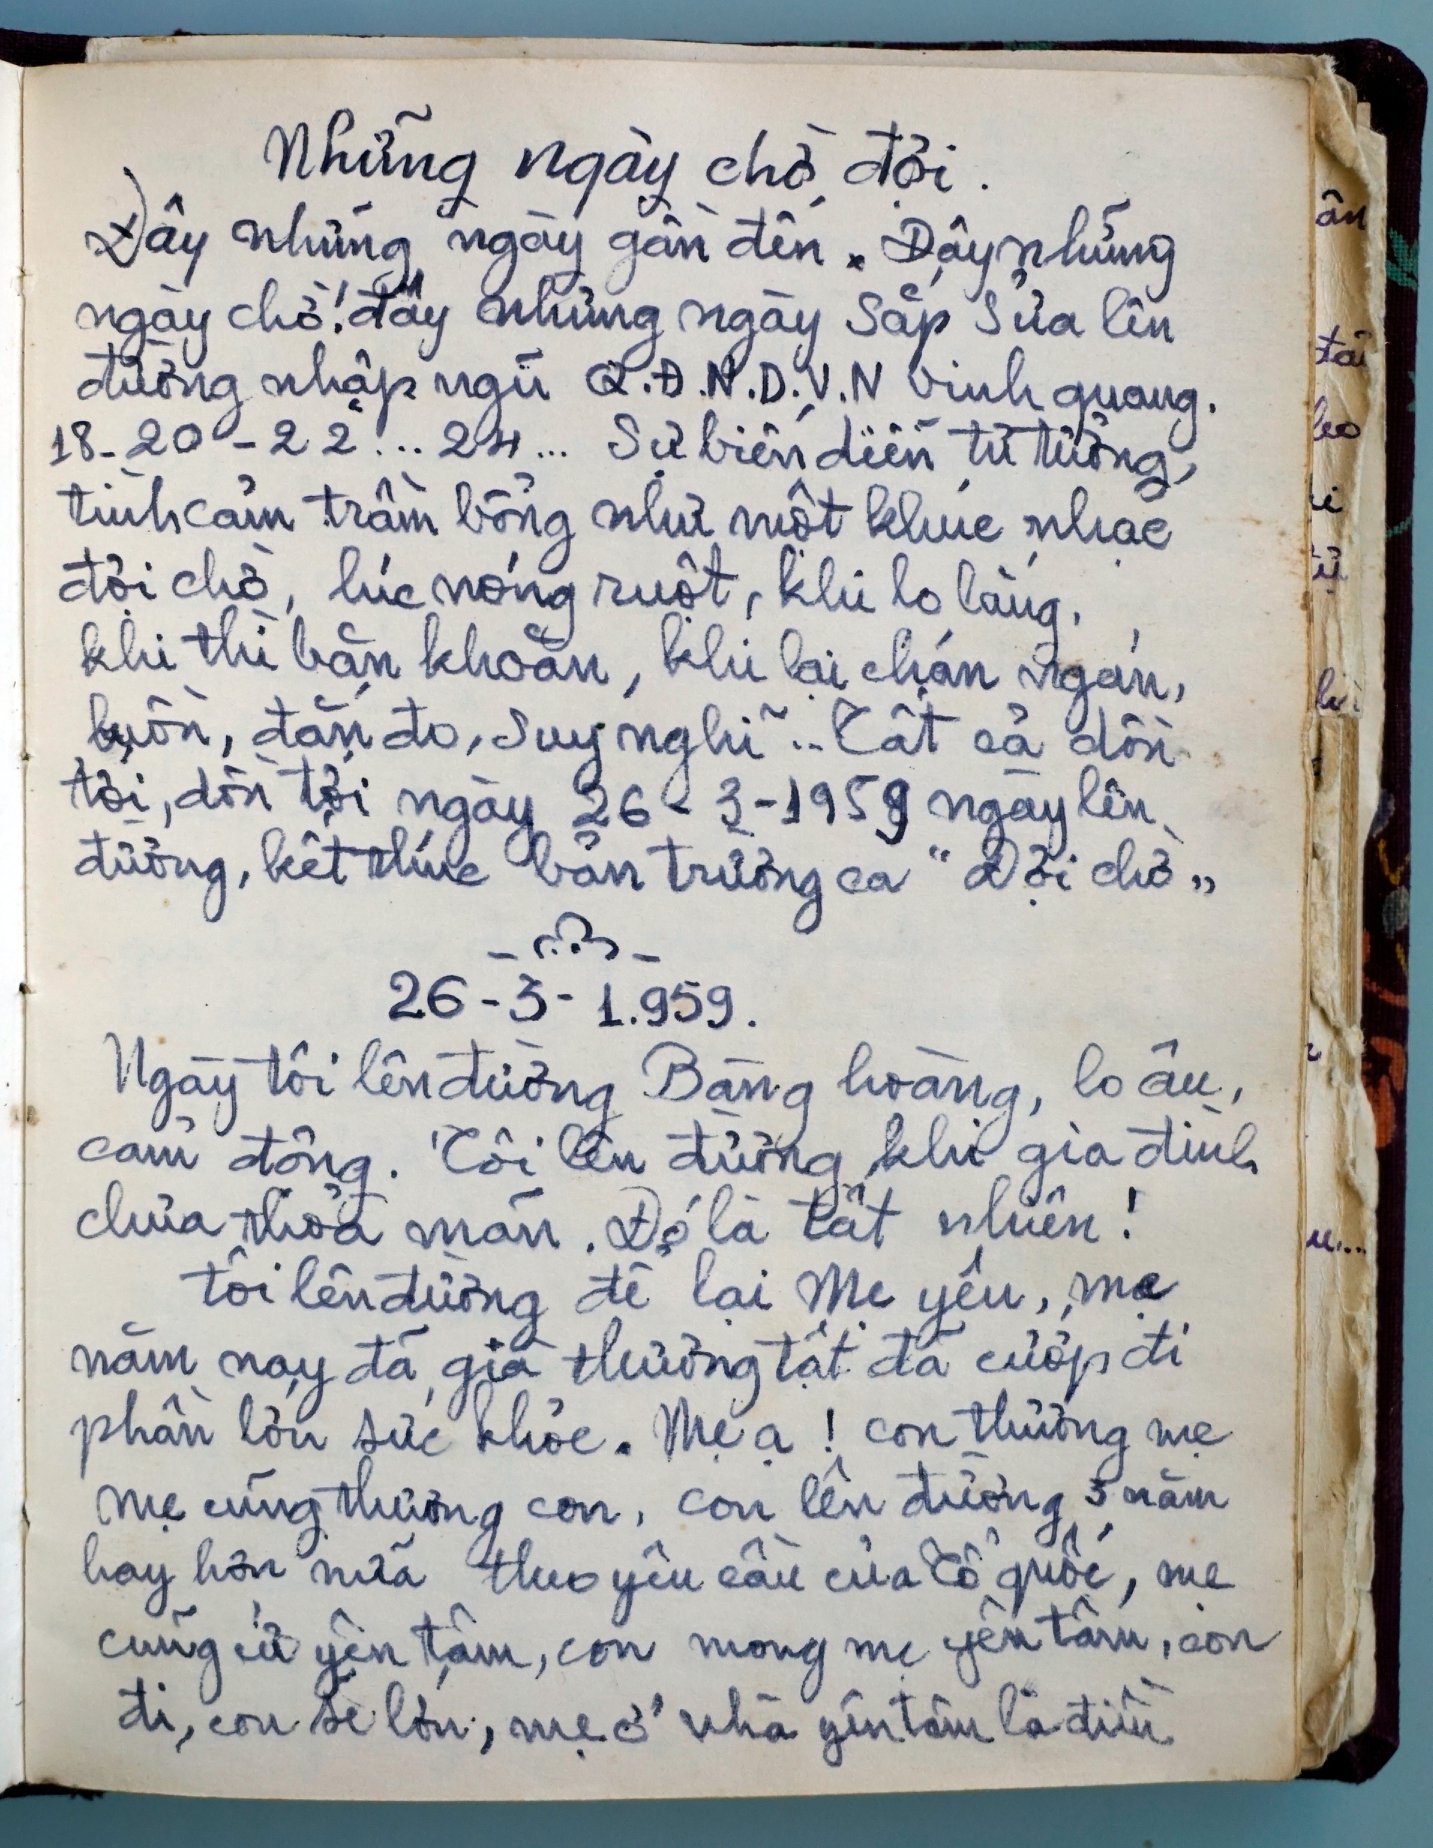 Những ngày chờ đợi.
Đây những ngày gần đến. Đây những
ngày chờ! đây những ngày Sắp Sửa lên
đường nhập ngũ Q.Đ.N.D.V.N Vinh quang.
18-20-22...24... Sự biến diễn tư tưởng,
tình cảm trầm bổng như một khúc nhạc
đợi chờ, lúc nóng ruột, khi lo lắng,
khi thì băn khoăn, khi lại chán ngán,
buồn, đắn đo, suy nghĩ... Tất cả dồn
tới, dồn tới ngày 26-3-1959 ngày lên
đường, kết thúc bản trường ca "Đợi chờ"
26-3-1.959.
Ngày tôi lên đường Bàng hoàng, lo âu,
cảm động. Tôi lên đường khi gia đình
chưa thỏa mãn. Đó là tất nhiên!
tôi lên đường để lại Mẹ yêu, mẹ
năm nay đã già thương tật đã cướp đi
phần lớn sức khỏe. Mẹ ạ! con thương mẹ
mẹ cũng thương con, con lên đường 3 năm
hay hơn nữa theo yêu cầu của Tổ quốc, mẹ
cũng cứ yên tâm, con mong mẹ yên tâm, con
đi, con sẽ lớn, mẹ ở nhà yên tâm là điều
ân